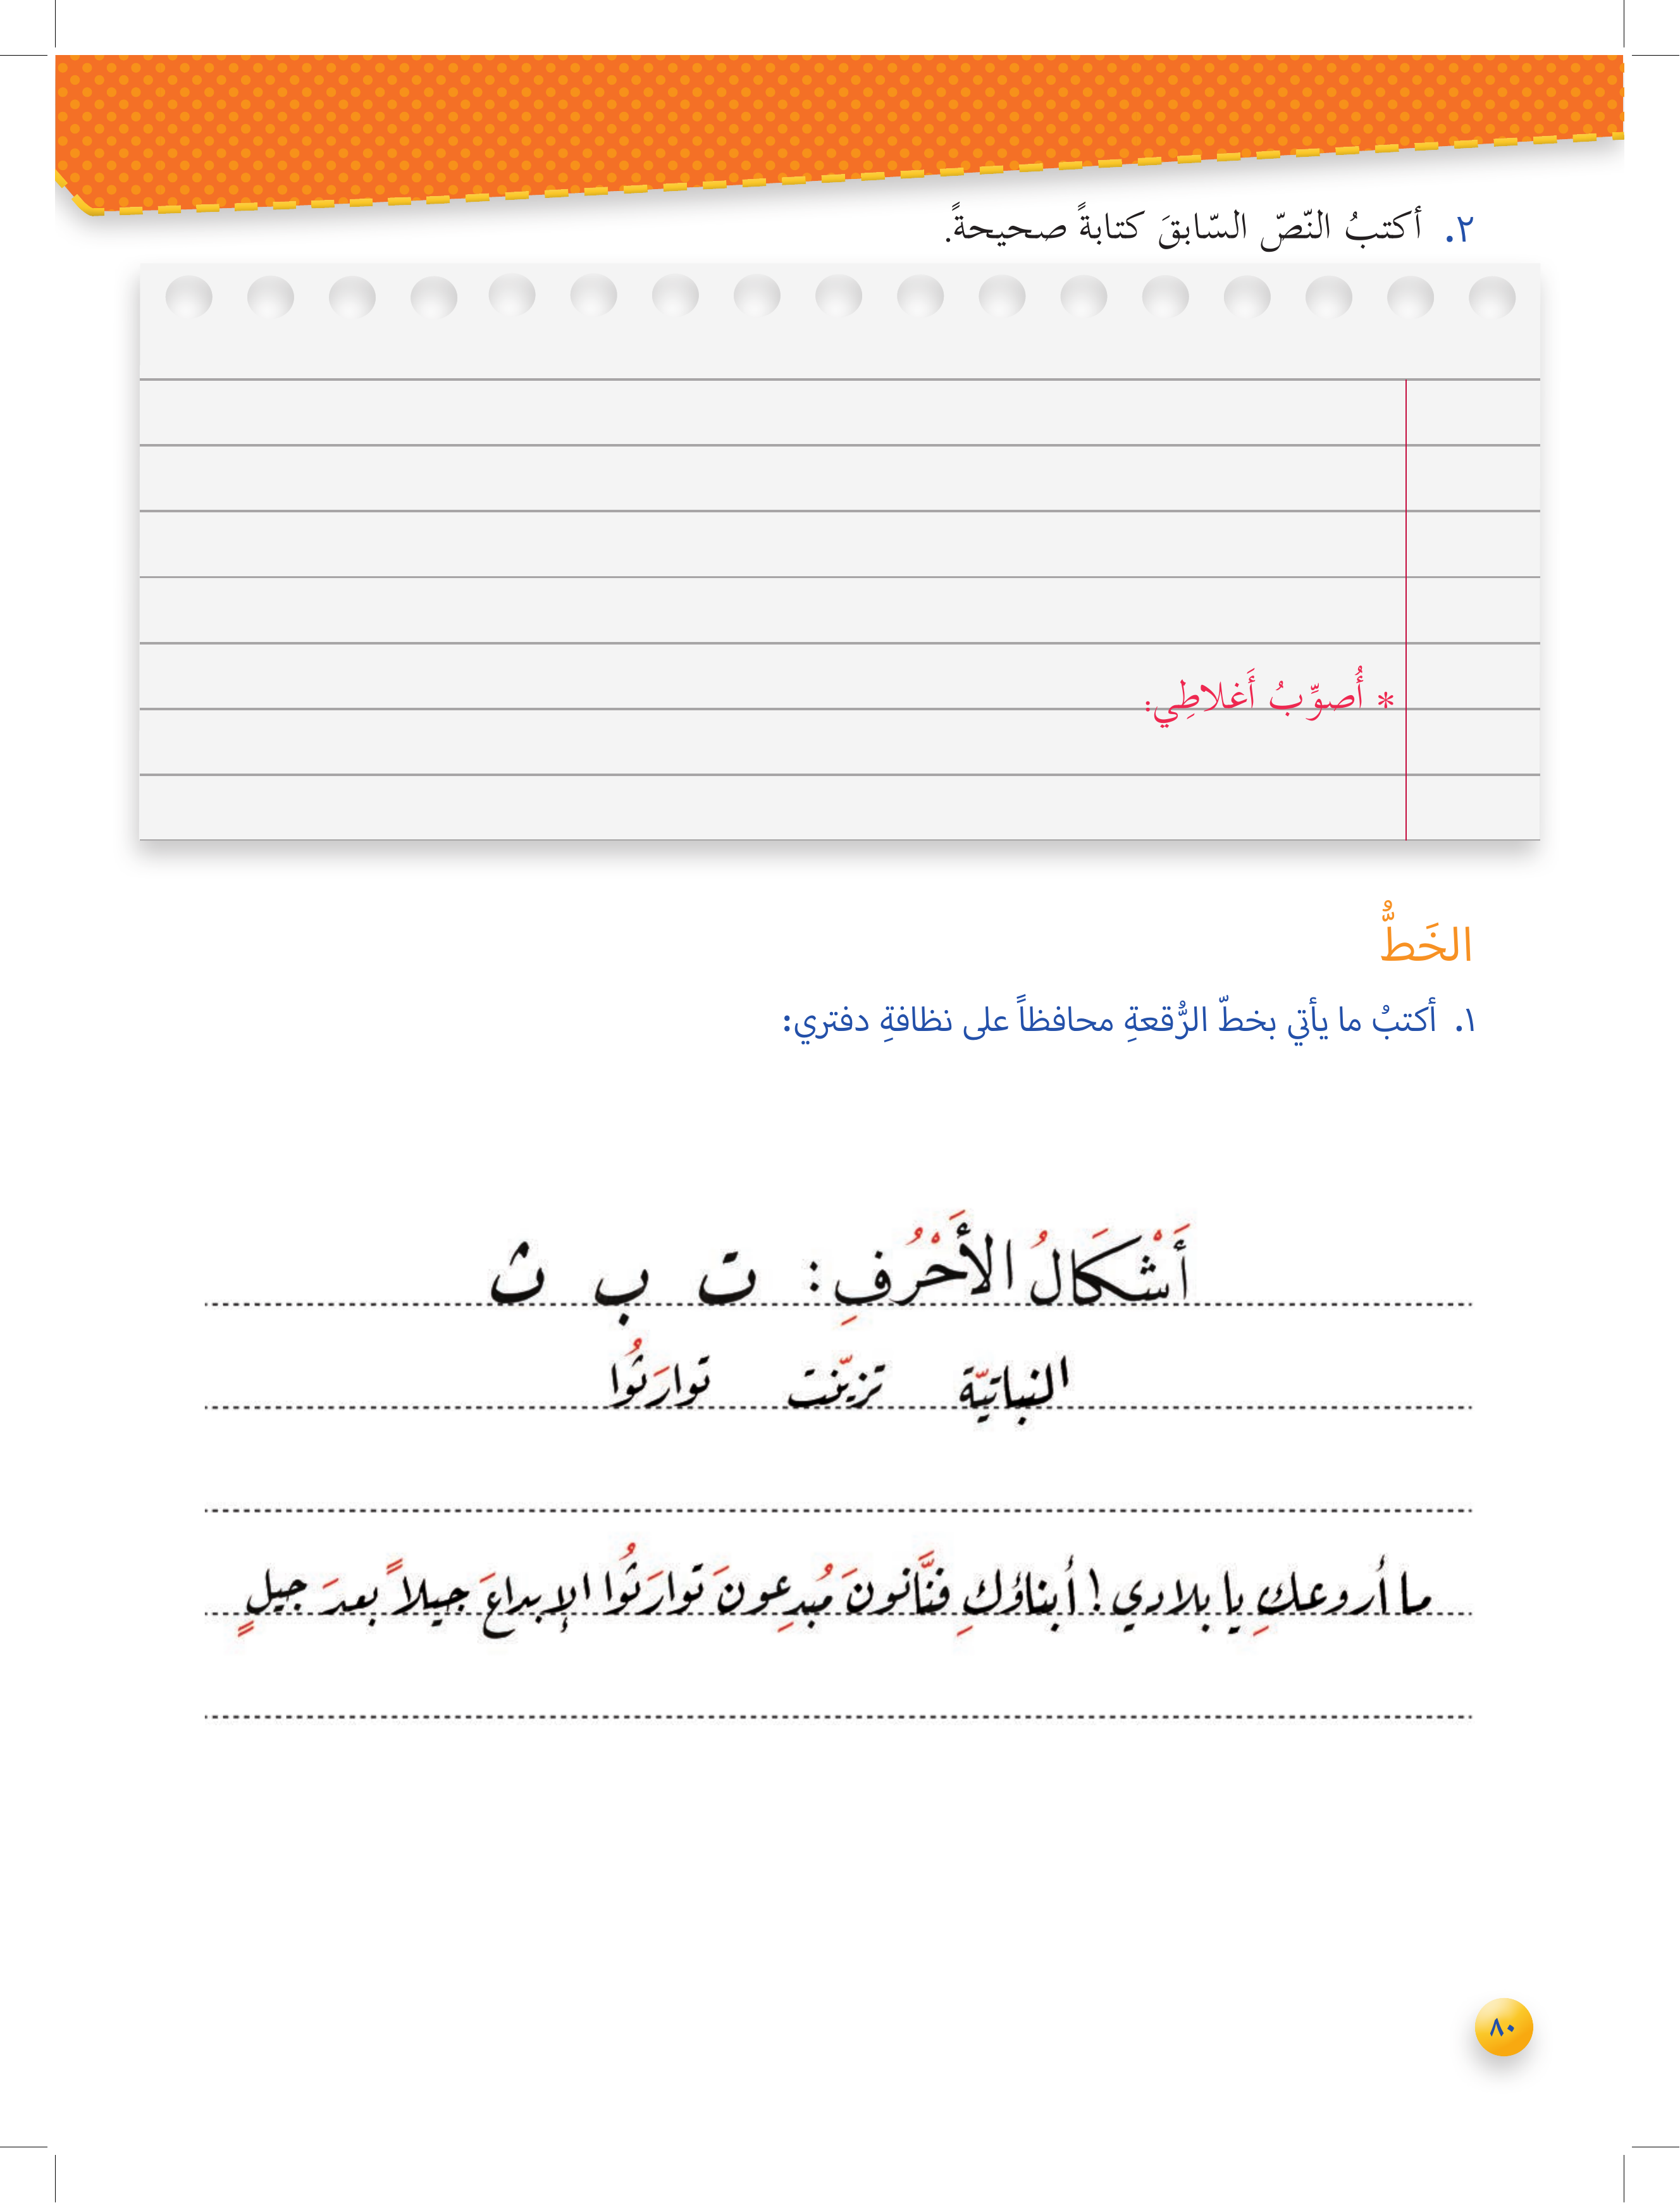 ٢. أكتبُ النّصّ السّابقَ كتابةً صحيحةً.
* أُصوِّبُ أَغلاطِي:
الخَطُّ
١. أكتبُ ما يأتي بخطّ الرُّقعةِ محافظاً على نظافةِ دفتري:
أَشْكَالُ الأَحْرُفِ: ت ب ث
النباتيّة تزيّنت توارَثُوا
ما أروعكِ يا بلادي! أبناؤكِ فنَّانونَ مُبدِعونَ توارَثُوا الإبداعَ جيلاً بعدَ جيلٍ
٨٠